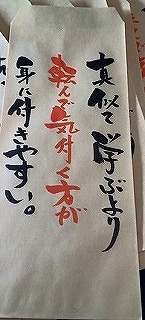 真似て学ぶより
転んで気付く方が
身に付きやすい。